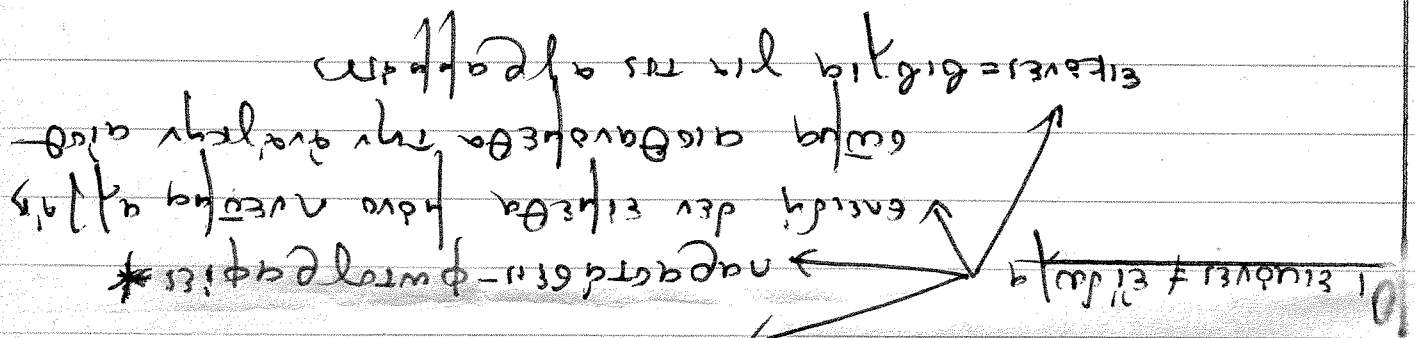 Οἱ εικόνες ≠ εἴδωλα
παραστάσεις - φωτογραφίες *
επειδή δεν είμεθα μόνο πνεῦμα αλλά
σῶμα αισθανόμεθα την ἀνάγκην αἰσθ-
εικόνες = βιβλία για τους αγραμμάτους